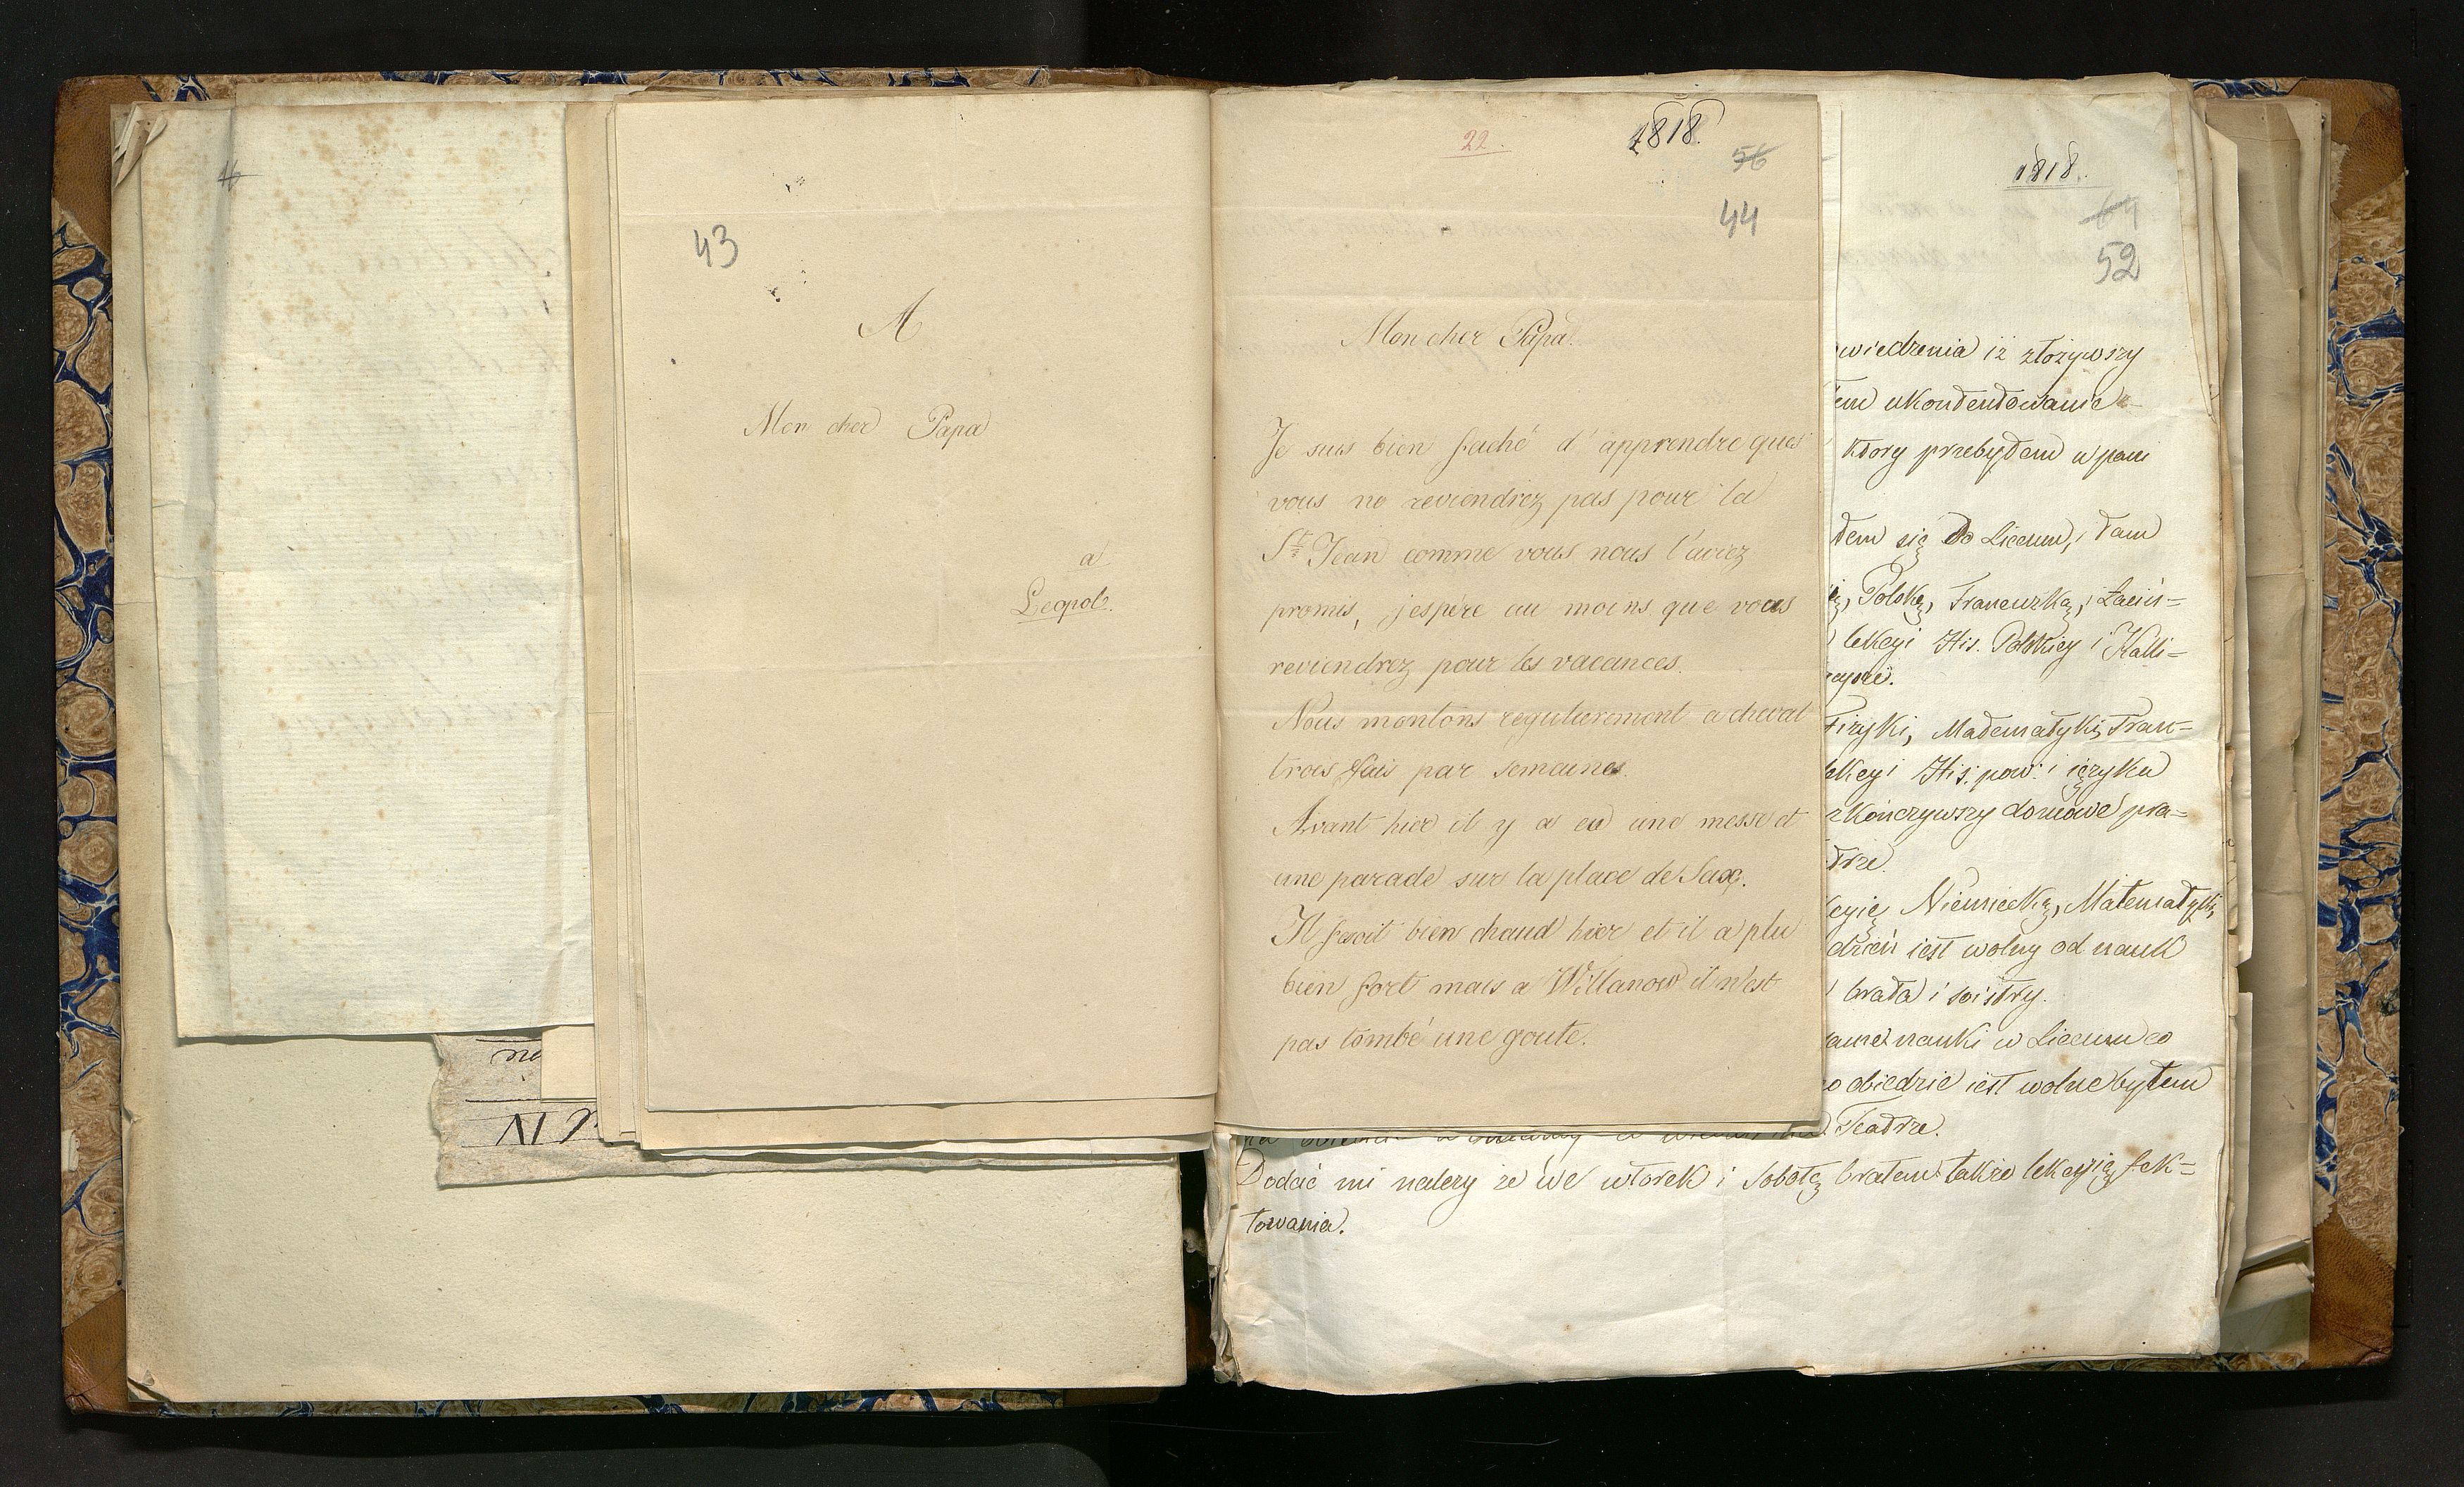 43
A
Mon cher Papa
a
Leopol.
22.
1818.
56
44
Mon cher Papa.
Je suis bien faché d'apprendre ques
vous ne reviendrez pas pour la
St Jean comme vous nous l'aviez
promis, j'espère au moins que vous
reviendrez pour les vacances.
Nous montons regulierement a cheval
trois fois par semaines.
Avant hier il y a eu une messe et
une parade sur la place de Saxe.
Il fesoit bien chaud hier et il a plu
bien fort mais a Willanow il n'est
pas tombé une goute.
1818.
64
52
wiedzenia iż złożywszy
ukontentowanie
ktory przebyłem w pani
łem się do Liceum, i tam
Polską, Francuzką, i Łaciń=
lekcyi His. Polskiey i Kalli=
Fizyki, Matematyki, Fran=
lekcyi His: pow: i ięzyku
zkończywszy domowé pra=
trze.
Niemiecką, Matematyki,
dzień iest wolny od nauk
brata i siostry.
nauki w Liceum co
obiedzie iest wolne byłem
Teatrze.
Dodać mi należy że we wtorek i sobotę brałem także lekcyią fek=
towania.